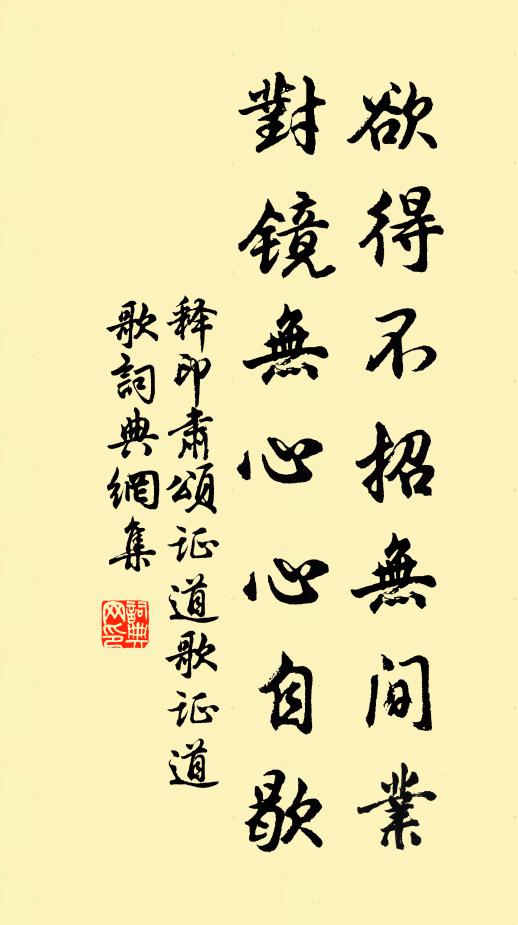 欲得不招無间業
對镜無心心自歇
释印肃頌证道歌证道
歌詞典網集
詞典
网印